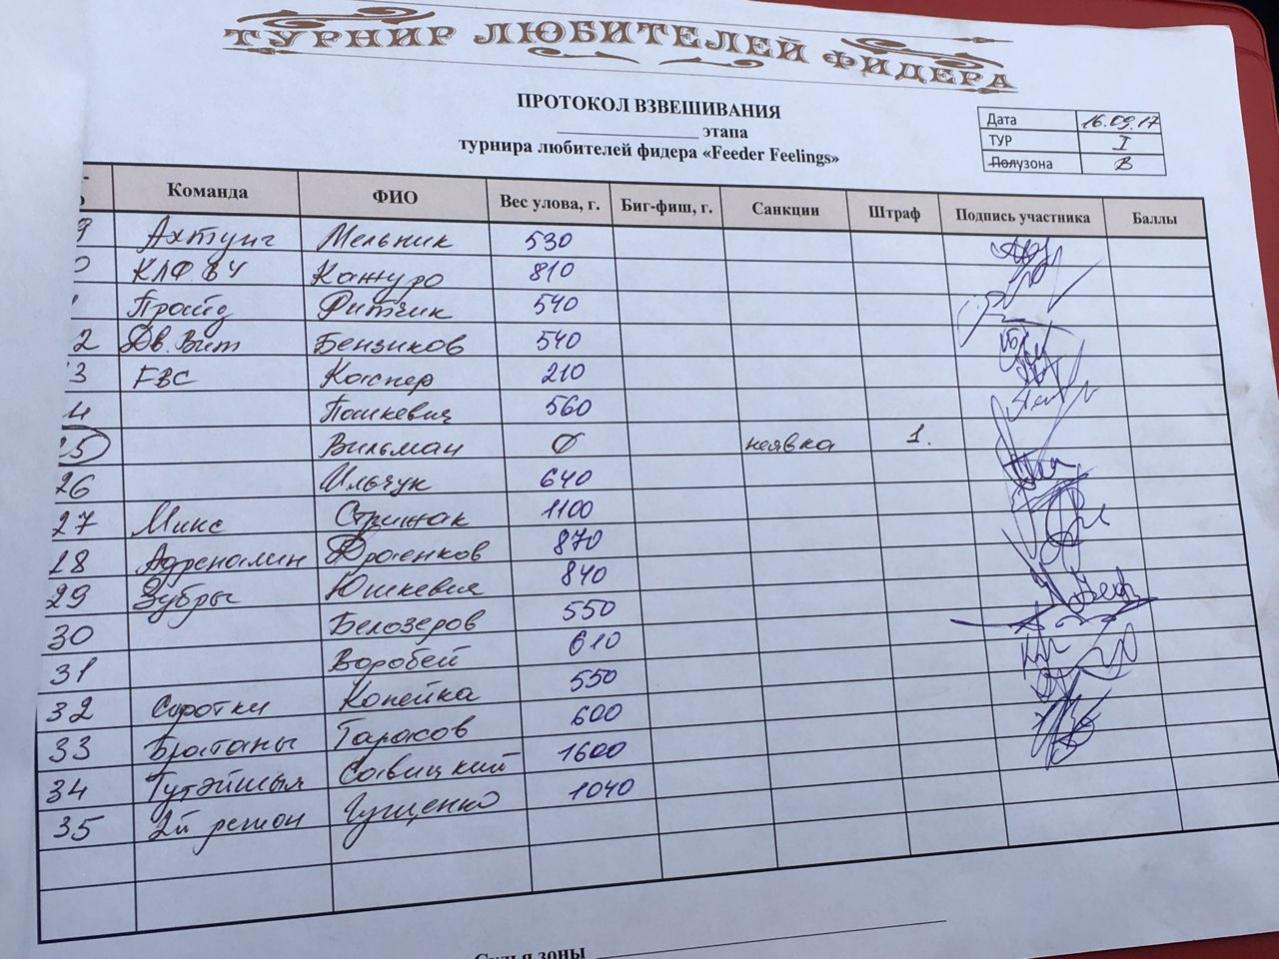 ТУРНИР ЛЮБИТЕЛЕЙ ФИДЕРА
ПРОТОКОЛ ВЗВЕШИВАНИЯ
этапа
турнира любителей фидера «Feeder Feelings»
Дата 16.09.17
ТУР I
Полузона В
Команда ФИО Вес улова, г. Биг-фиш, г. Санкции Штраф Подпись участника Баллы
9 Ахтунг Мельник 530
0 КЛФ ВЧ Кажуро 810
Фитчик 540
2 Дв. Вит Бензиков 540
3 FBC Каспер 210
4 Пашкевич 560
25 Вильман 0 неявка 1.
26 Ильчук 640
27 Микс Стрижак 1100
28 Адреналин Драенков 870
29 Зубры Юшкевич 840
30 Белозеров 550
31 Воробей 610
32 Сиротки Копейка 550
33 Братаны Тарасов 600
34 Тутэйшыя Савицкий 1600
35 2й регион Гущенко 1040
Судья зоны